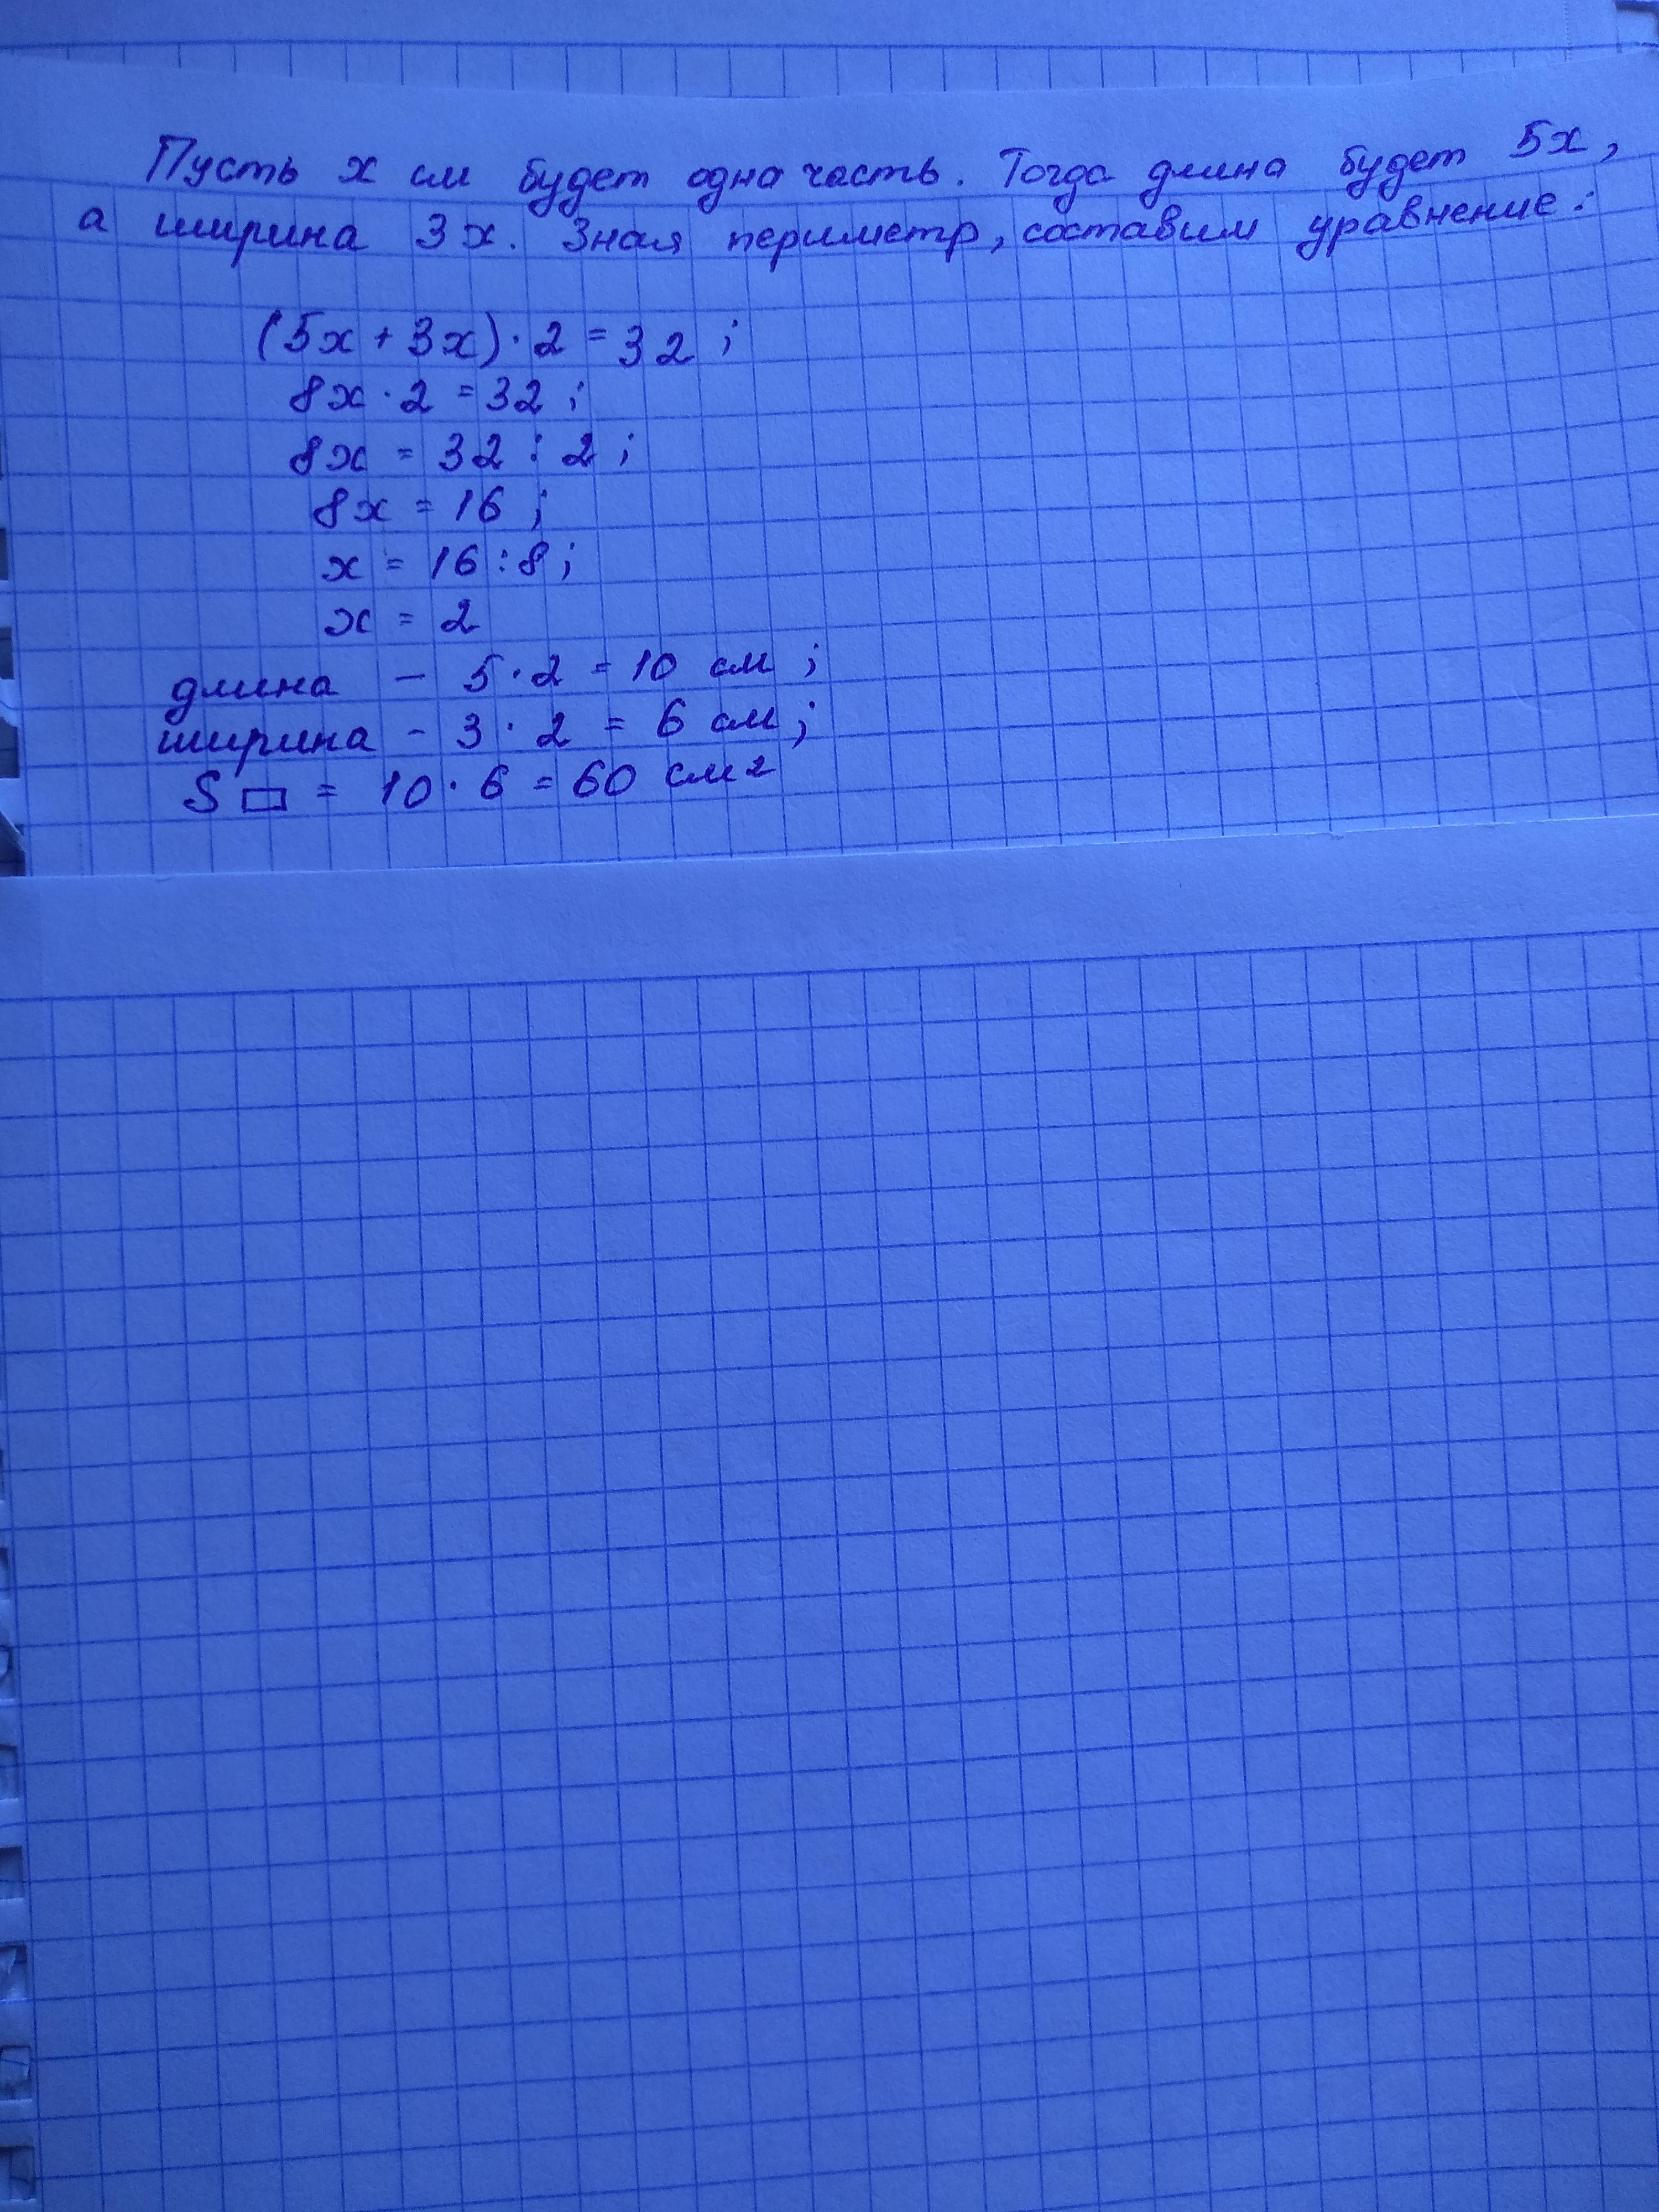 Пусть x см будет одна часть. Тогда длина будет 5x,
а ширина 3x. Зная периметр, составим уравнение:
(5x + 3x) · 2 = 32 ;
8x · 2 = 32 ;
8x = 32 : 2 ;
8x = 16 ;
x = 16 : 8 ;
x = 2
длина – 5 · 2 = 10 см ;
ширина – 3 · 2 = 6 см ;
S▭ = 10 · 6 = 60 см²